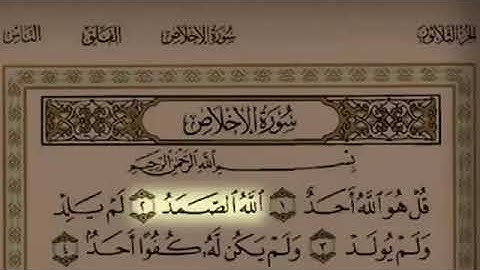 الجزء الثلاثون سورة الإخلاص الفلق الناس
سورة الإخلاص
بسم الله الرحمن الرحيم
قُلْ هُوَ ٱللَّهُ أَحَدٌ ١ ٱللَّهُ ٱلصَّمَدُ ٢ لَمْ يَلِدْ
وَلَمْ يُولَدْ ٣ وَلَمْ يَكُن لَّهُۥ كُفُوًا أَحَدٌۢ ٤